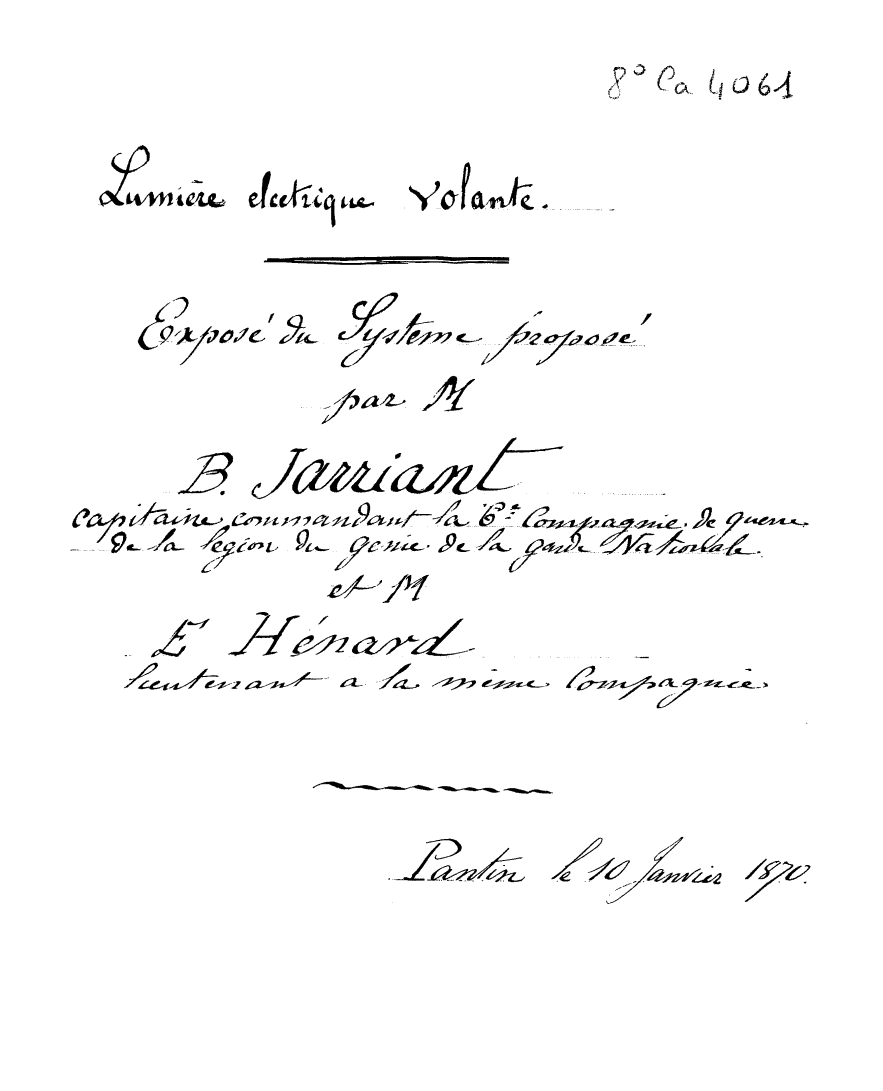 8° Ca 4061
Lumière electrique Volante.
Exposé du Systeme proposé
par M
B. Jarriant
capitaine commandant la 6e Compagnie de guerre
de la légion du génie de la garde Nationale.
et M
E Hénard
lieutenant a la même Compagnie
Pantin le 10 Janvier 1870.